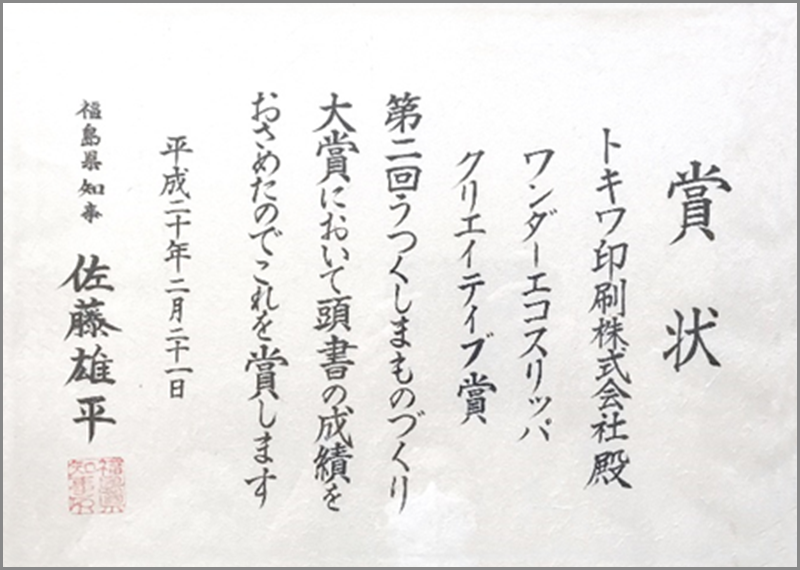 賞状
トキワ印刷株式会社殿
ワンダーエコスリッパ
クリエイティブ賞
第二回うつくしまものづくり
大賞において頭書の成績を
おさめたのでこれを賞します
平成二十年二月二十一日
福島県知事 佐藤雄平